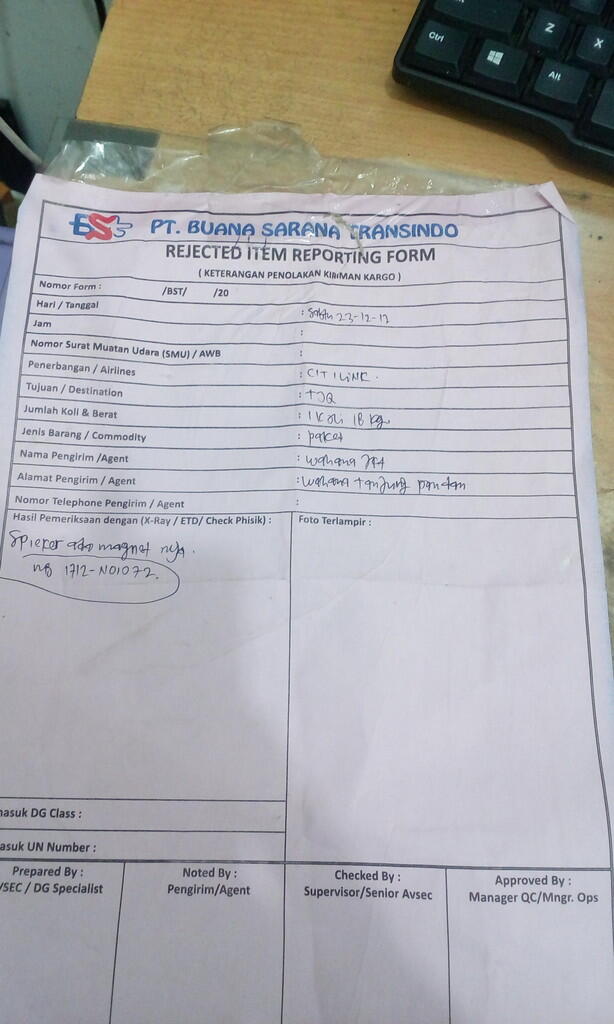 Ctrl
Z
X
Alt
BST PT. BUANA SARANA TRANSINDO
REJECTED ITEM REPORTING FORM
( KETERANGAN PENOLAKAN KIRIMAN KARGO )
Nomor Form : /BST/ /20
Hari / Tanggal : Sabtu 23-12-17
Jam :
Nomor Surat Muatan Udara (SMU) / AWB :
Penerbangan / Airlines : CITILINK.
Tujuan / Destination : TJQ
Jumlah Koli & Berat : 1 Koli 18 kg.
Jenis Barang / Commodity : paket
Nama Pengirim /Agent : wahana
Alamat Pengirim / Agent : wahana tanjung pandan
Nomor Telephone Pengirim / Agent :
Hasil Pemeriksaan dengan (X-Ray / ETD/ Check Phisik) :
Spieker ada magnet nya.
1712-N01072.
Foto Terlampir :
masuk DG Class :
asuk UN Number :
Prepared By :
VSEC / DG Specialist
Noted By :
Pengirim/Agent
Checked By :
Supervisor/Senior Avsec
Approved By :
Manager QC/Mngr. Ops